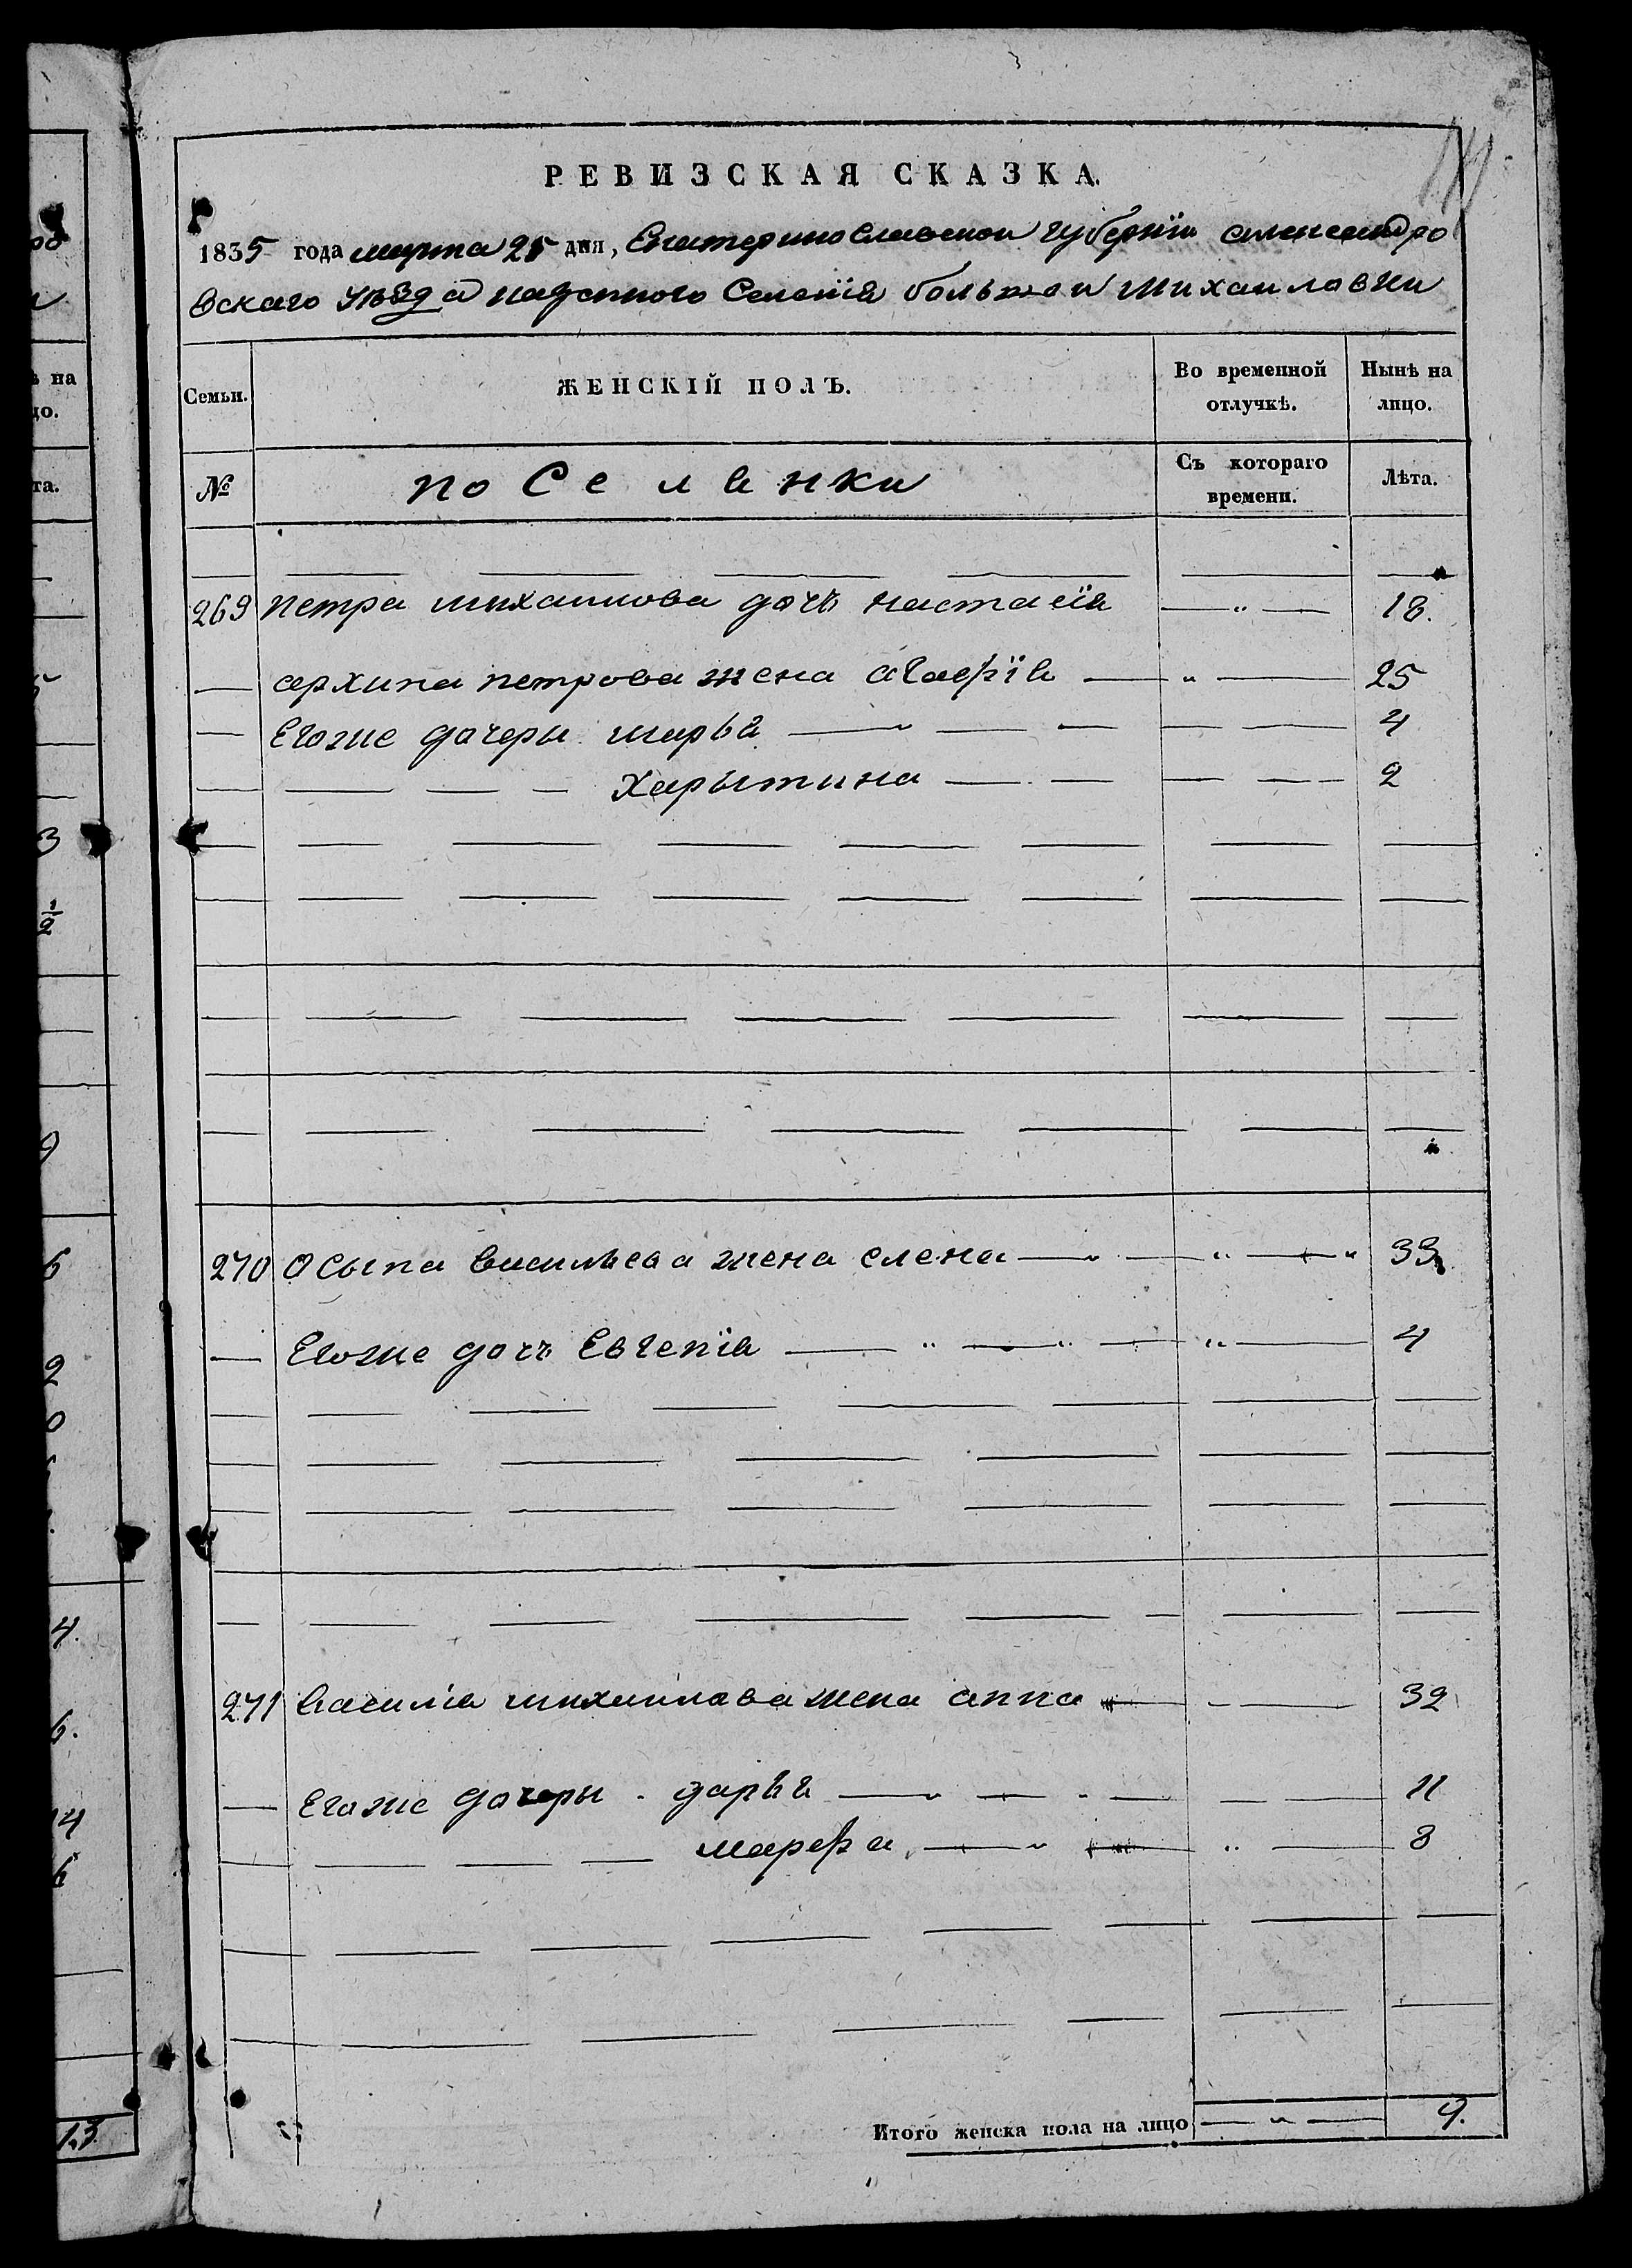 РЕВИЗСКАЯ СКАЗКА.
1835 года марта 25 дня, Екатеринославской губернїи александро
вскаго уѣзда казенного Селенїя большой михаиловки
Семьи. ЖЕНСКІЙ ПОЛЪ. Во временной отлучкѣ. Нынѣ на лицо.
№ поСелянки Съ котораго времени. Лѣта.
269 петра михаилова дочь настасїя — " — 18.
— архипа петрова жена агафїя — " — 25
— Егоже дочеры марья — " — — — — 4
— — — — харытина — — — — — 2
270 Осыпа васильева жена елена — " — " — " 33
— Егоже дочь Евгенїя — " — " — " — 4
271 василїя михаилова жена анна — - — 32
— Егоже дочеры дарья — " — - — — — 11
— — — — марфа — " — " — 8
Итого женска пола на лицо — " — 9.
на
цо.
та.
3
1/2
6
2
0
4.
6.
14
13